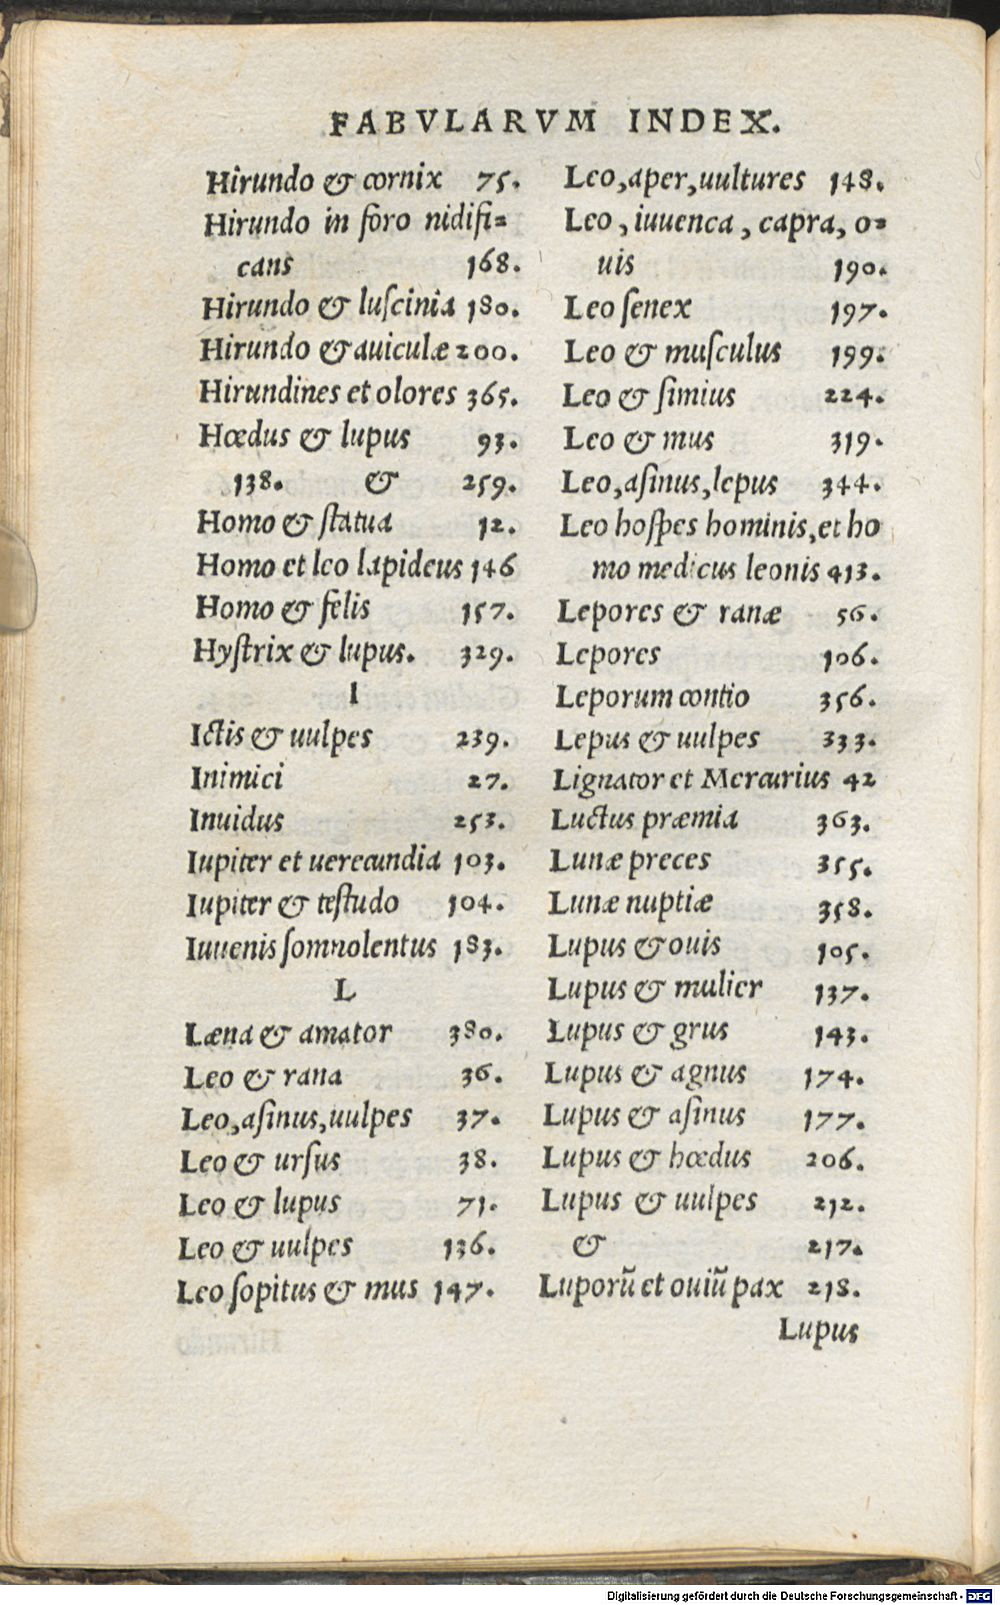 FABVLARVM INDEX.
Hirundo & cornix 75.
Hirundo in foro nidifi=
cans 168.
Hirundo & luſcinia 180.
Hirundo & auiculæ 200.
Hirundines et olores 365.
Hœdus & lupus 93.
138. & 259.
Homo & ſtatua 12.
Homo et leo lapideus 146
Homo & felis 157.
Hyſtrix & lupus. 329.
I
Ictis & uulpes 239.
Inimici 27.
Inuidus 253.
Iupiter et uerecundia 103.
Iupiter & teſtudo 104.
Iuuenis ſomnolentus 183.
L
Læna & amator 380.
Leo & rana 36.
Leo,aſinus,uulpes 37.
Leo & urſus 38.
Leo & lupus 71.
Leo & uulpes 136.
Leo ſopitus & mus 147.
Leo,aper,uultures 148.
Leo, iuuenca, capra, o=
uis 190.
Leo ſenex 197.
Leo & muſculus 199.
Leo & ſimius 224.
Leo & mus 319.
Leo,aſinus,lepus 344.
Leo hoſpes hominis,et ho
mo medicus leonis 413.
Lepores & ranæ 56.
Lepores 106.
Leporum contio 356.
Lepus & uulpes 333.
Lignator et Mercurius 42
Luctus præmia 363.
Lunæ preces 355.
Lunæ nuptiæ 358.
Lupus & ouis 105.
Lupus & mulier 137.
Lupus & grus 143.
Lupus & agnus 174.
Lupus & aſinus 177.
Lupus & hœdus 206.
Lupus & uulpes 212.
& 217.
Luporū et ouiū pax 218.
Lupus
Digitalisierung gefördert durch die Deutsche Forschungsgemeinschaft - DFG